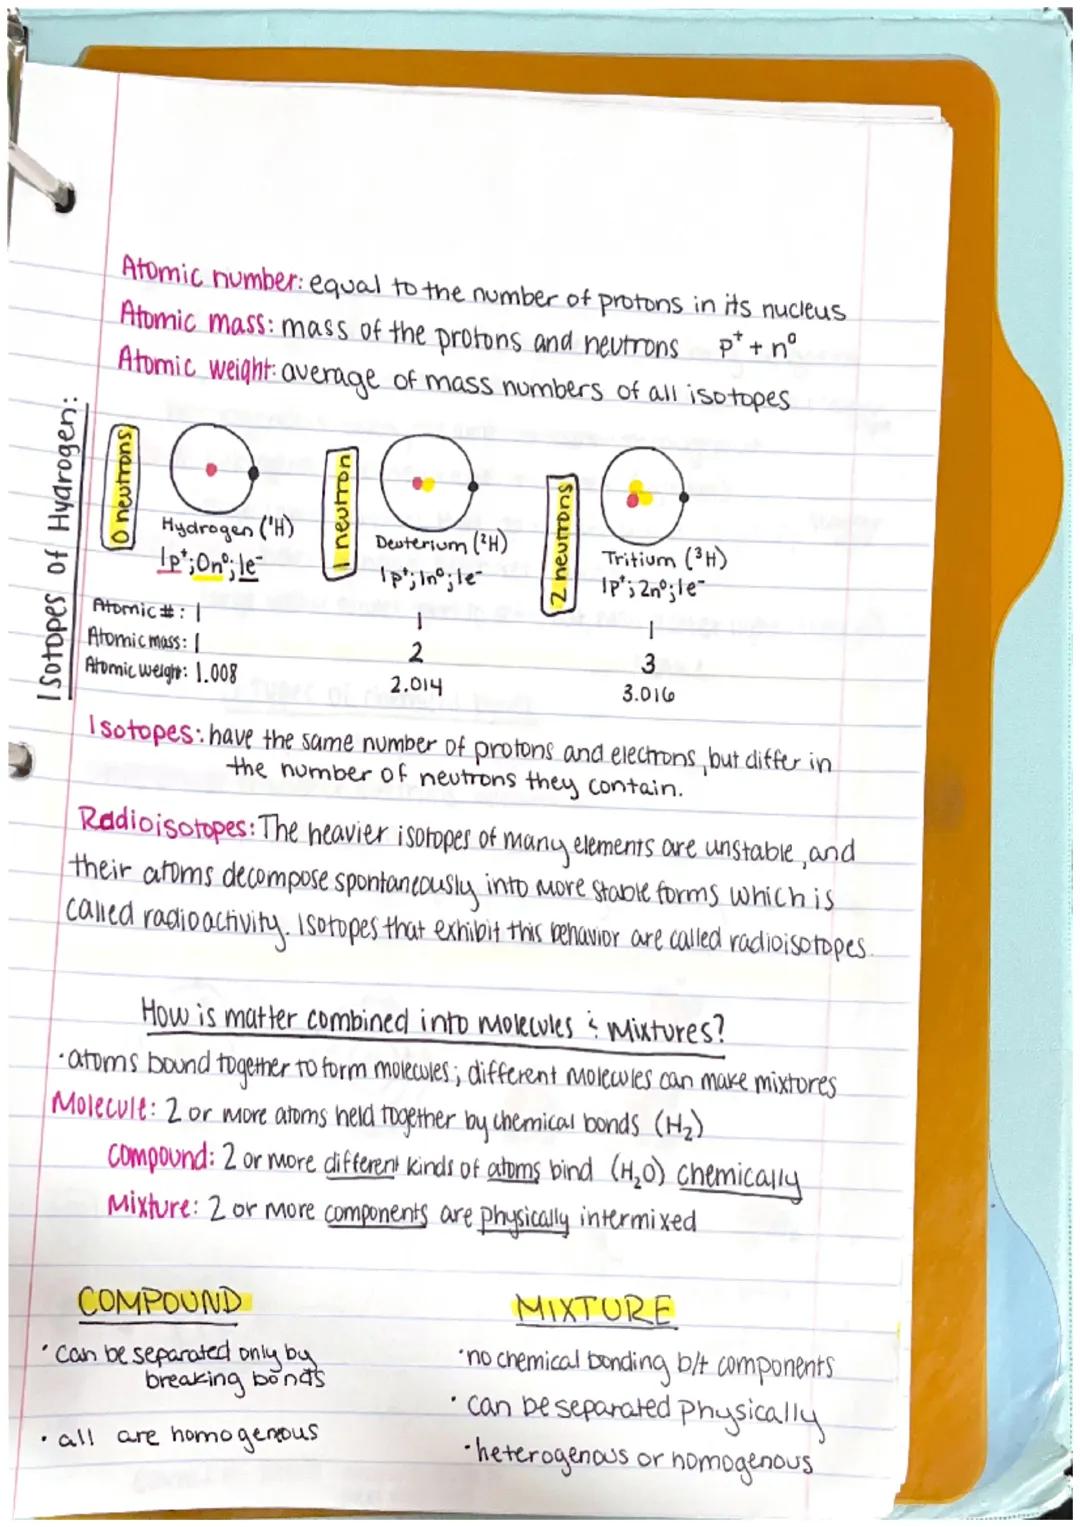 Atomic number: equal to the number of protons in its nucleus
Atomic mass: mass of the protons and neutrons p⁺ + n⁰
Atomic weight: average of mass numbers of all isotopes
Isotopes of Hydrogen:
0 neutrons
Hydrogen (¹H)
1p⁺; 0n⁰; 1e⁻
1 neutron
Deuterium (²H)
1p⁺; 1n⁰; 1e⁻
2 neutrons
Tritium (³H)
1p⁺; 2n⁰; 1e⁻
Atomic #: 1 1 1
Atomic mass: 1 2 3
Atomic weight: 1.008 2.014 3.016
Isotopes: have the same number of protons and electrons, but differ in
the number of neutrons they contain.
Radioisotopes: The heavier isotopes of many elements are unstable, and
their atoms decompose spontaneously into more stable forms which is
called radioactivity. Isotopes that exhibit this behavior are called radioisotopes.
How is matter combined into molecules & mixtures?
·atoms bound together to form molecules; different molecules can make mixtures
Molecule: 2 or more atoms held together by chemical bonds (H₂)
Compound: 2 or more different kinds of atoms bind (H₂O) chemically
Mixture: 2 or more components are physically intermixed
COMPOUND
·can be separated only by
breaking bonds
·all are homogenous
MIXTURE
·no chemical bonding b/t components
·can be separated physically
·heterogenous or homogenous